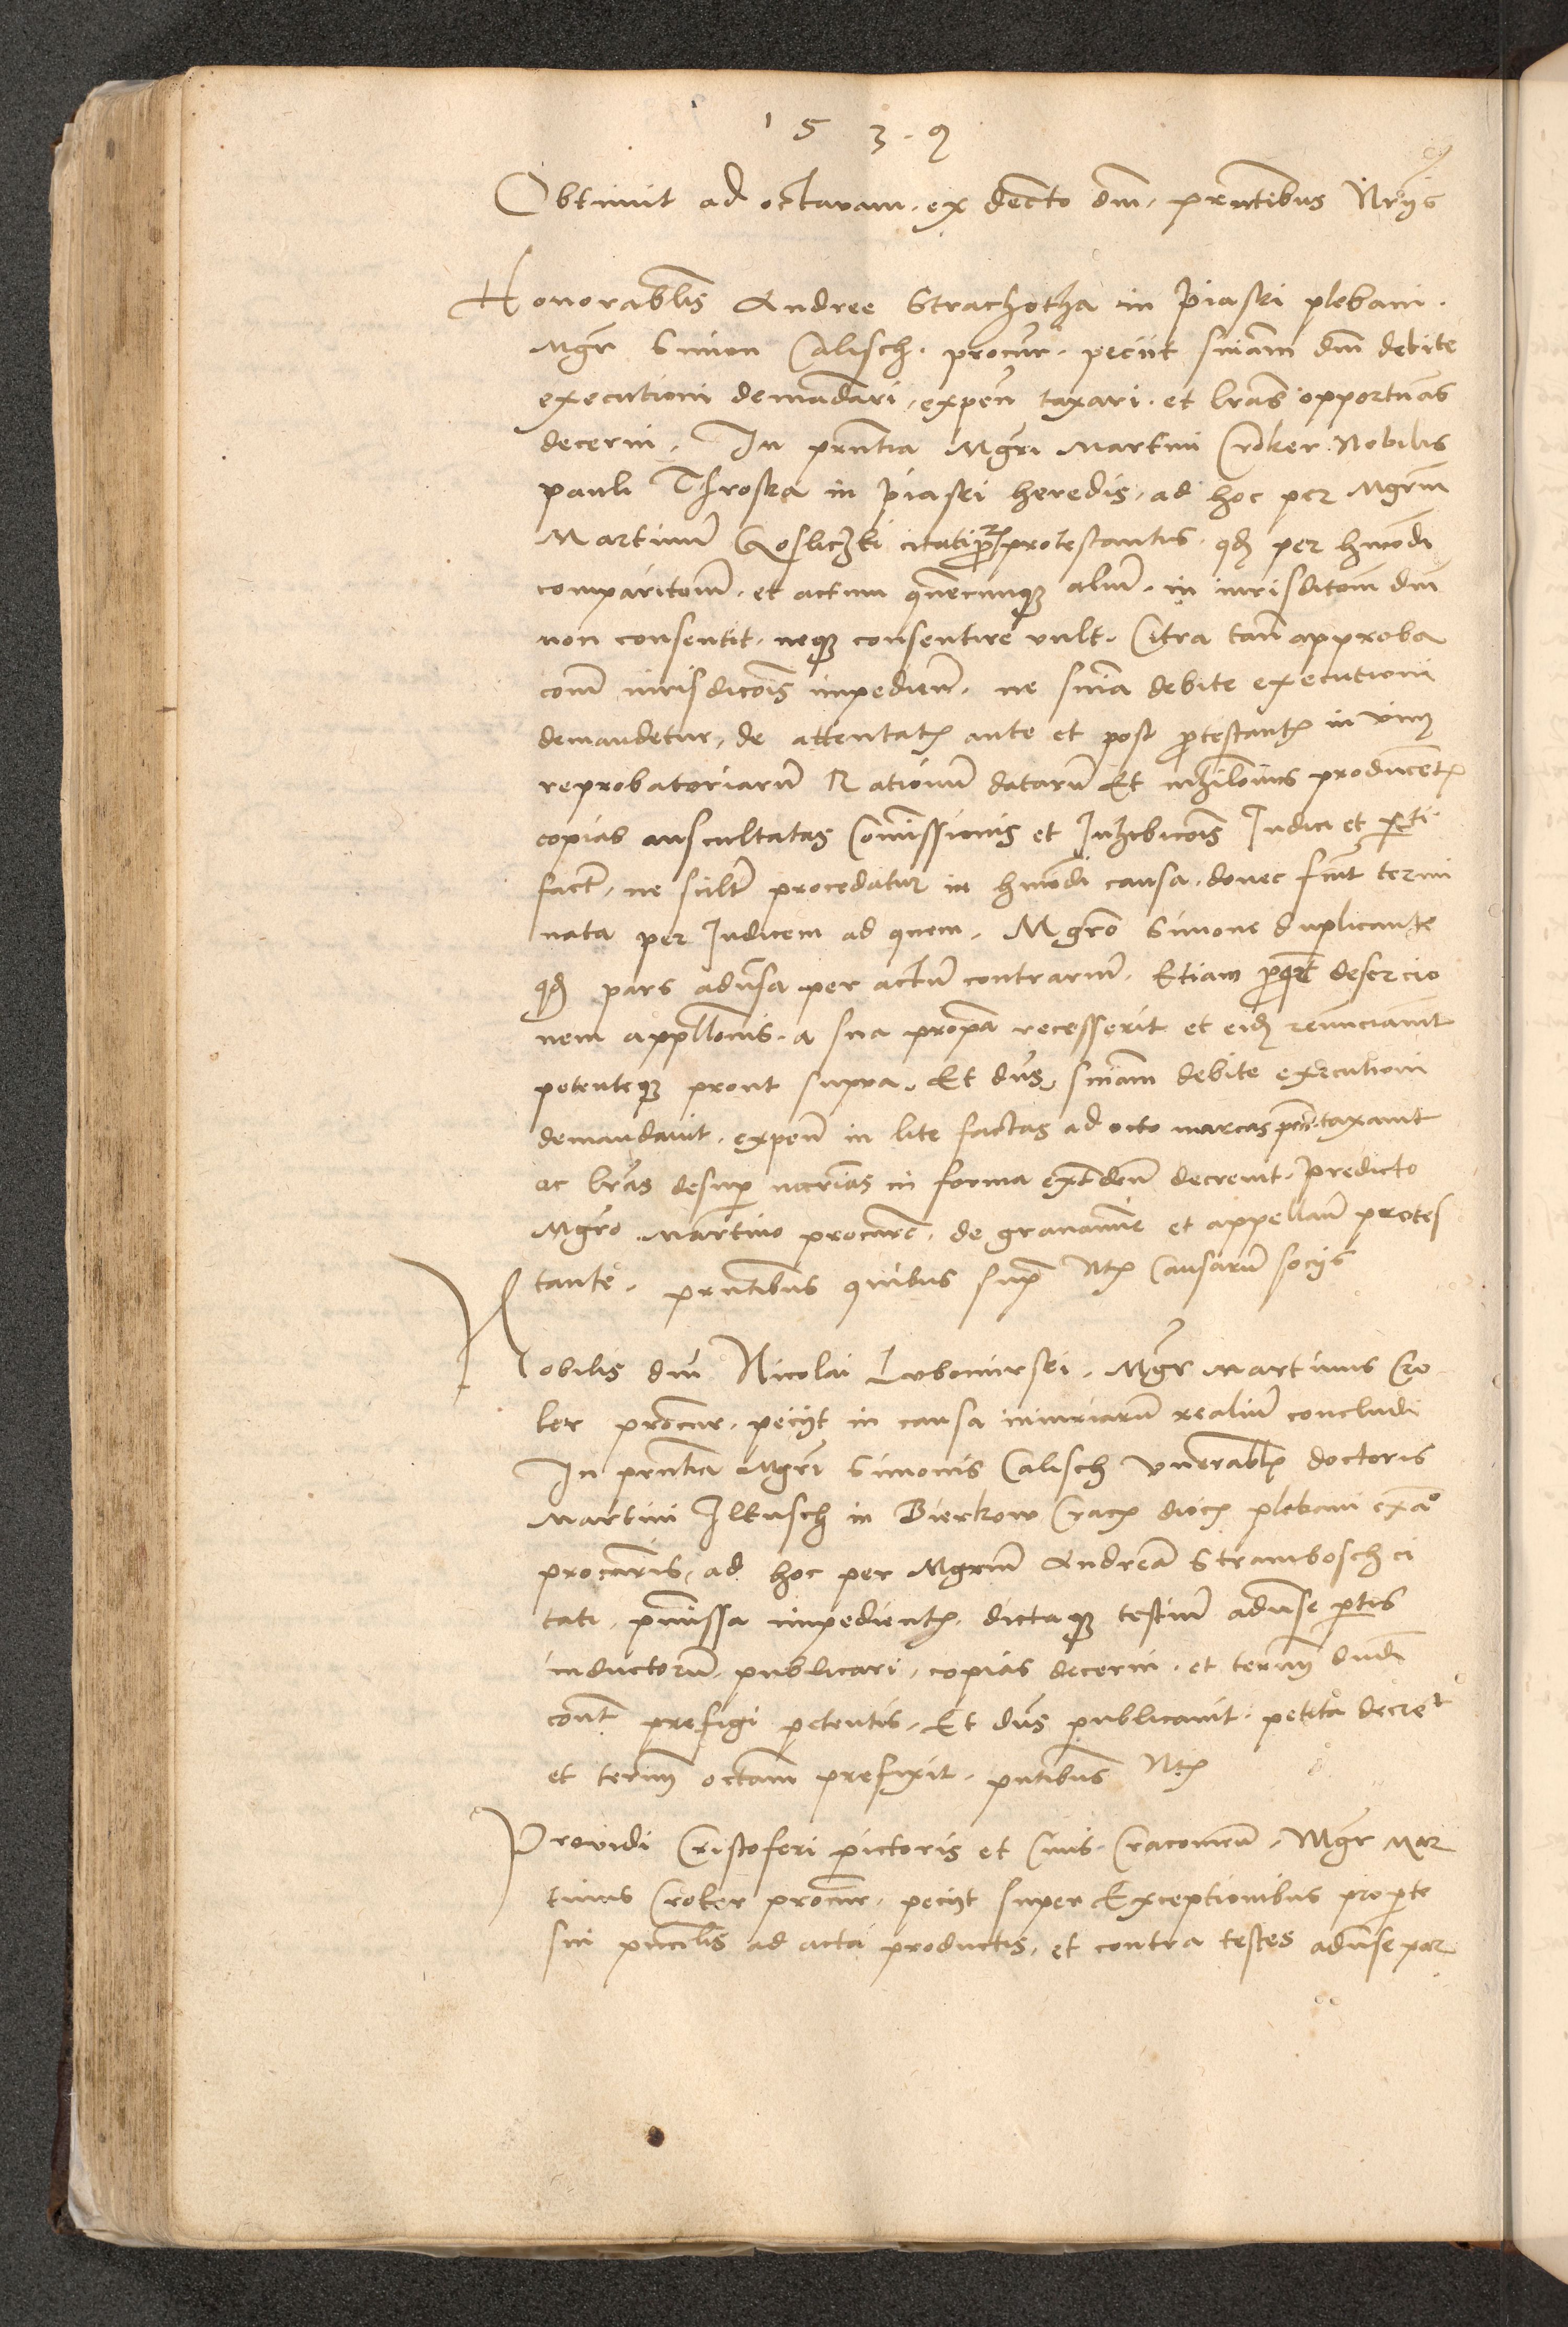 1 5 3 9
Obtinuit ad octavam ex decto dni prntibus Ntrijs
Honorablis Andree Strachotha in Piaski plebani
Mgr Simon Calisch procur. peciit sniam dni debite
executioni demadari, expen taxari et lras opportunas
decerni. In prntia Mgri Martini Croker Nobilis
pauli Throska in Piaski heredis, ad hoc per Mgrm
Martinum Gosliczki citati procur protestantis, qd per hmodi
comparitonem et actum quecunque alium in iurisditom dni
non consentit, neque consentire vult. Citra tamen approba
com iurisdicois impedien. ne snia debite executioni
demandetur, de attentatis ante et post protestant in vim
reprobatoriarum Rationum datarum Et nihilominus producent
copias auscultatas Comissionis et Inhibicois Iudici et parti
fact, ne sulter procedatur in hmodi causa, donec fuit termi
nata per Iudicem ad quem. Mgro Simone duplicante
qd pars adversa per actum contrarium. Etiam desercio
nem appllonis a sua propa recesserit et eid renunciavit
petenteque prout supra. Et dns sniam debite executioni
demandavit, expen in lite factas ad octo marcas taxavit
ac lras desup ncrias in forma extden decrevit, predicto
Mgro Martino procure de gravamine et appellan protes
tante. prntibus quibus supra Ntrijs Causarum socijs
Nobilis dni Nicolai Lubomirski. Mgr Martinus Cro
ker procur. peciit in causa iniuriarum realium concludi
In prntia Mgri Simonis Calisch venerablis doctoris
Martini Ilkusch in Bierkow Crac dioc plebani
procuris, ad hoc per Mgrum Andream Strambosch ci
tati, pmissa impedientis, dictaque testium adverse partis
inductorum, publicari, copias decerni, et termn dudi
cont prefigi petentis, Et dns publicavit petita decre
et termn octam prefixit. pntibus Ntrijs
Providi Cristoferi pictoris et Civis Cracovien. Mgr Mar
tinus Croker procur. peciit super Exceptionibus pro parte
sui pncilis ad acta productis, et contra testes adverse par